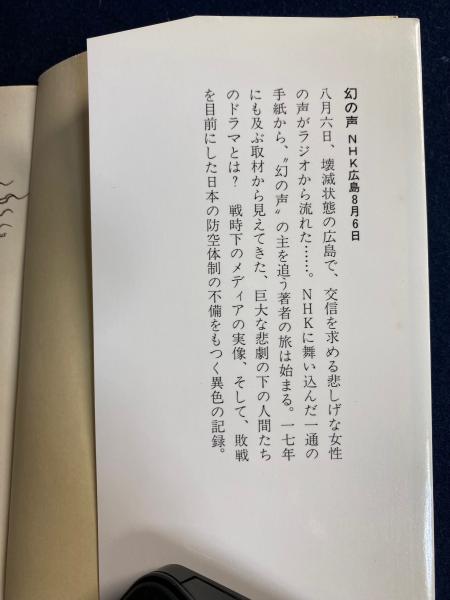 幻の声 NHK広島8月6日
八月六日、壊滅状態の広島で、交信を求める悲しげな女性
の声がラジオから流れた……。NHKに舞い込んだ一通の
手紙から、〝幻の声〟の主を追う著者の旅は始まる。一七年
にも及ぶ取材から見えてきた、巨大な悲劇の下の人間たち
のドラマとは？　戦時下のメディアの実像、そして、敗戦
を目前にした日本の防空体制の不備をもつく異色の記録。